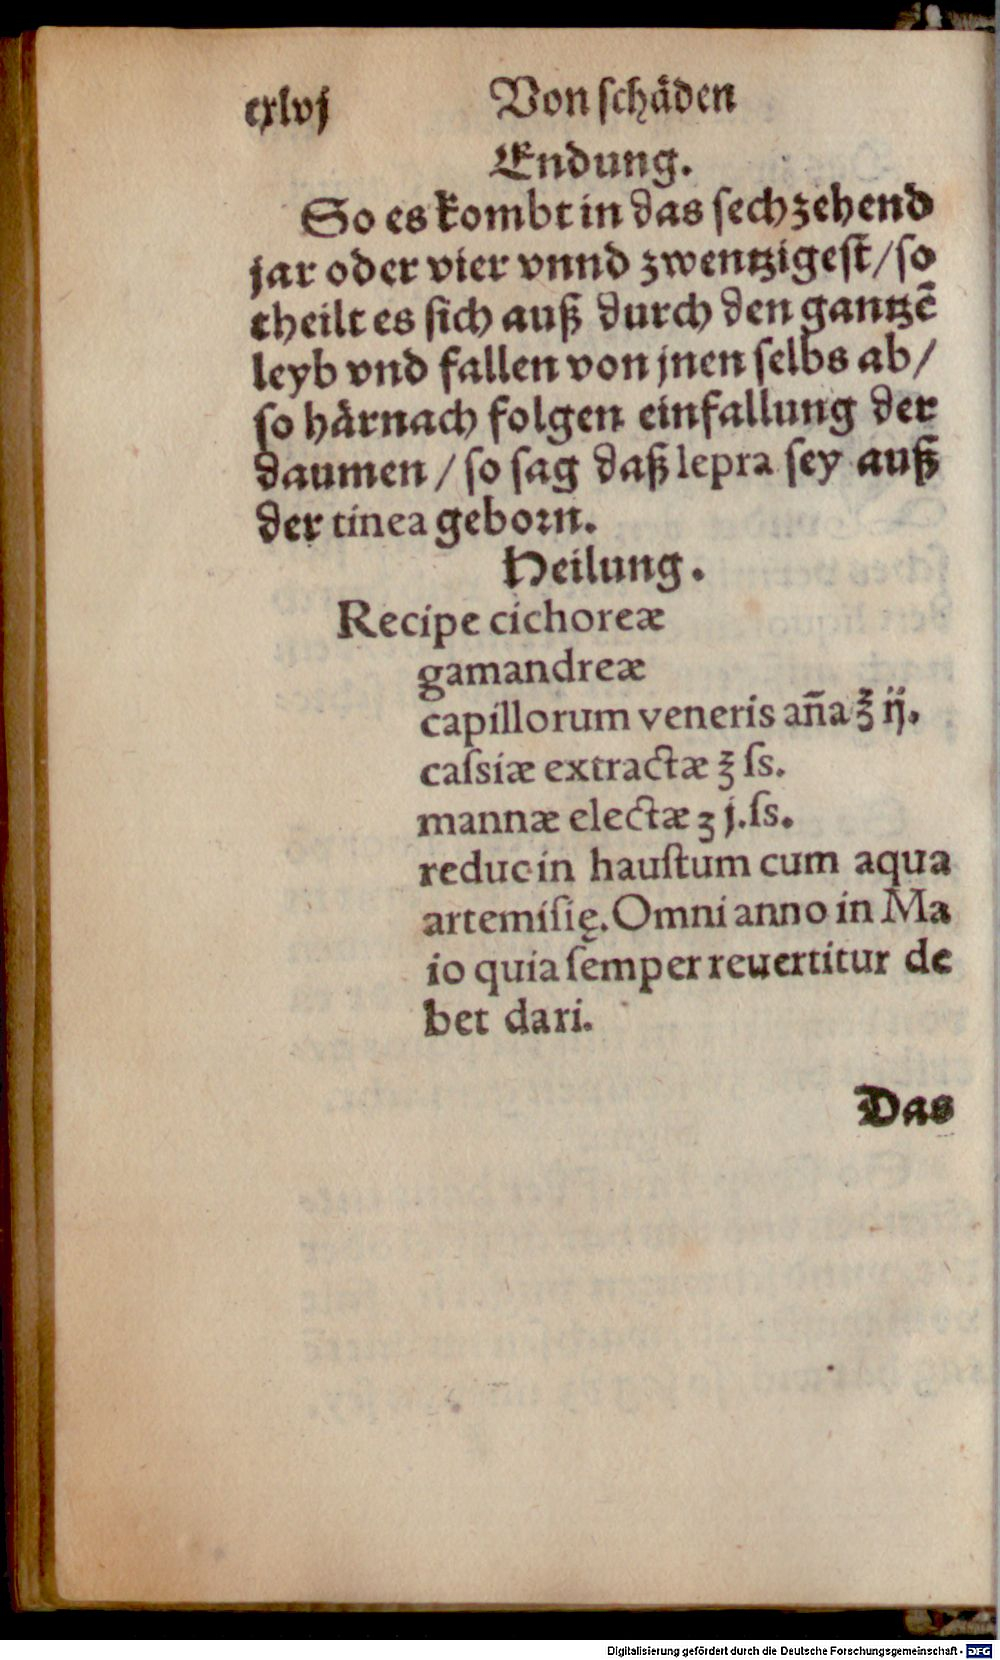 cxlvj Von schäden
Endung.
So es kombt in das sechzehend
jar oder vier vnnd zwentzigest/so
theilt es sich auß durch den gantzẽ
leyb vnd fallen von jnen selbs ab/
so härnach folgen einfallung der
daumen/so sag daß lepra sey auß
der tinea geborn.
Heilung.
Recipe cichoreæ
gamandreæ
capillorum veneris aña ℥ ij.
cassiæ extractæ ℥ ss.
mannæ electæ ʒ j.ss.
reduc in haustum cum aqua
artemisię. Omni anno in Ma
io quia semper reuertitur de
bet dari.
Das
Digitalisierung gefördert durch die Deutsche Forschungsgemeinschaft - DFG